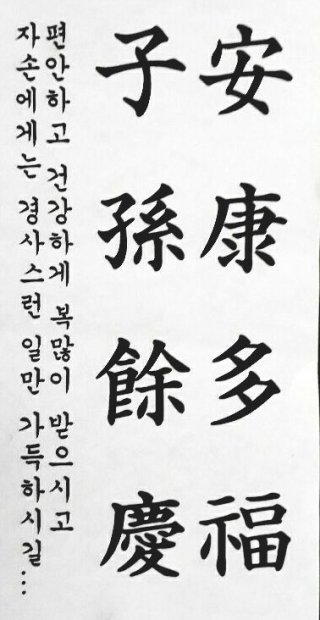 安康多福
子孫餘慶
편안하고 건강하게 복많이 받으시고
자손에게는 경사스런 일만 가득하시길...